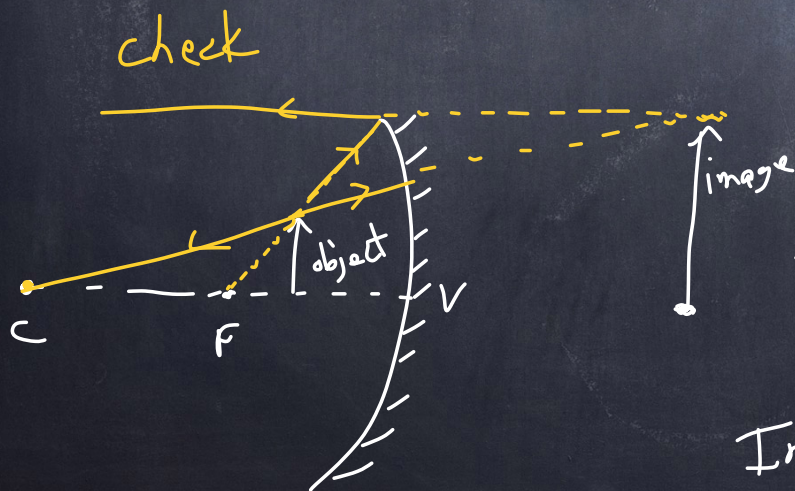 check
image
object
V
C
F